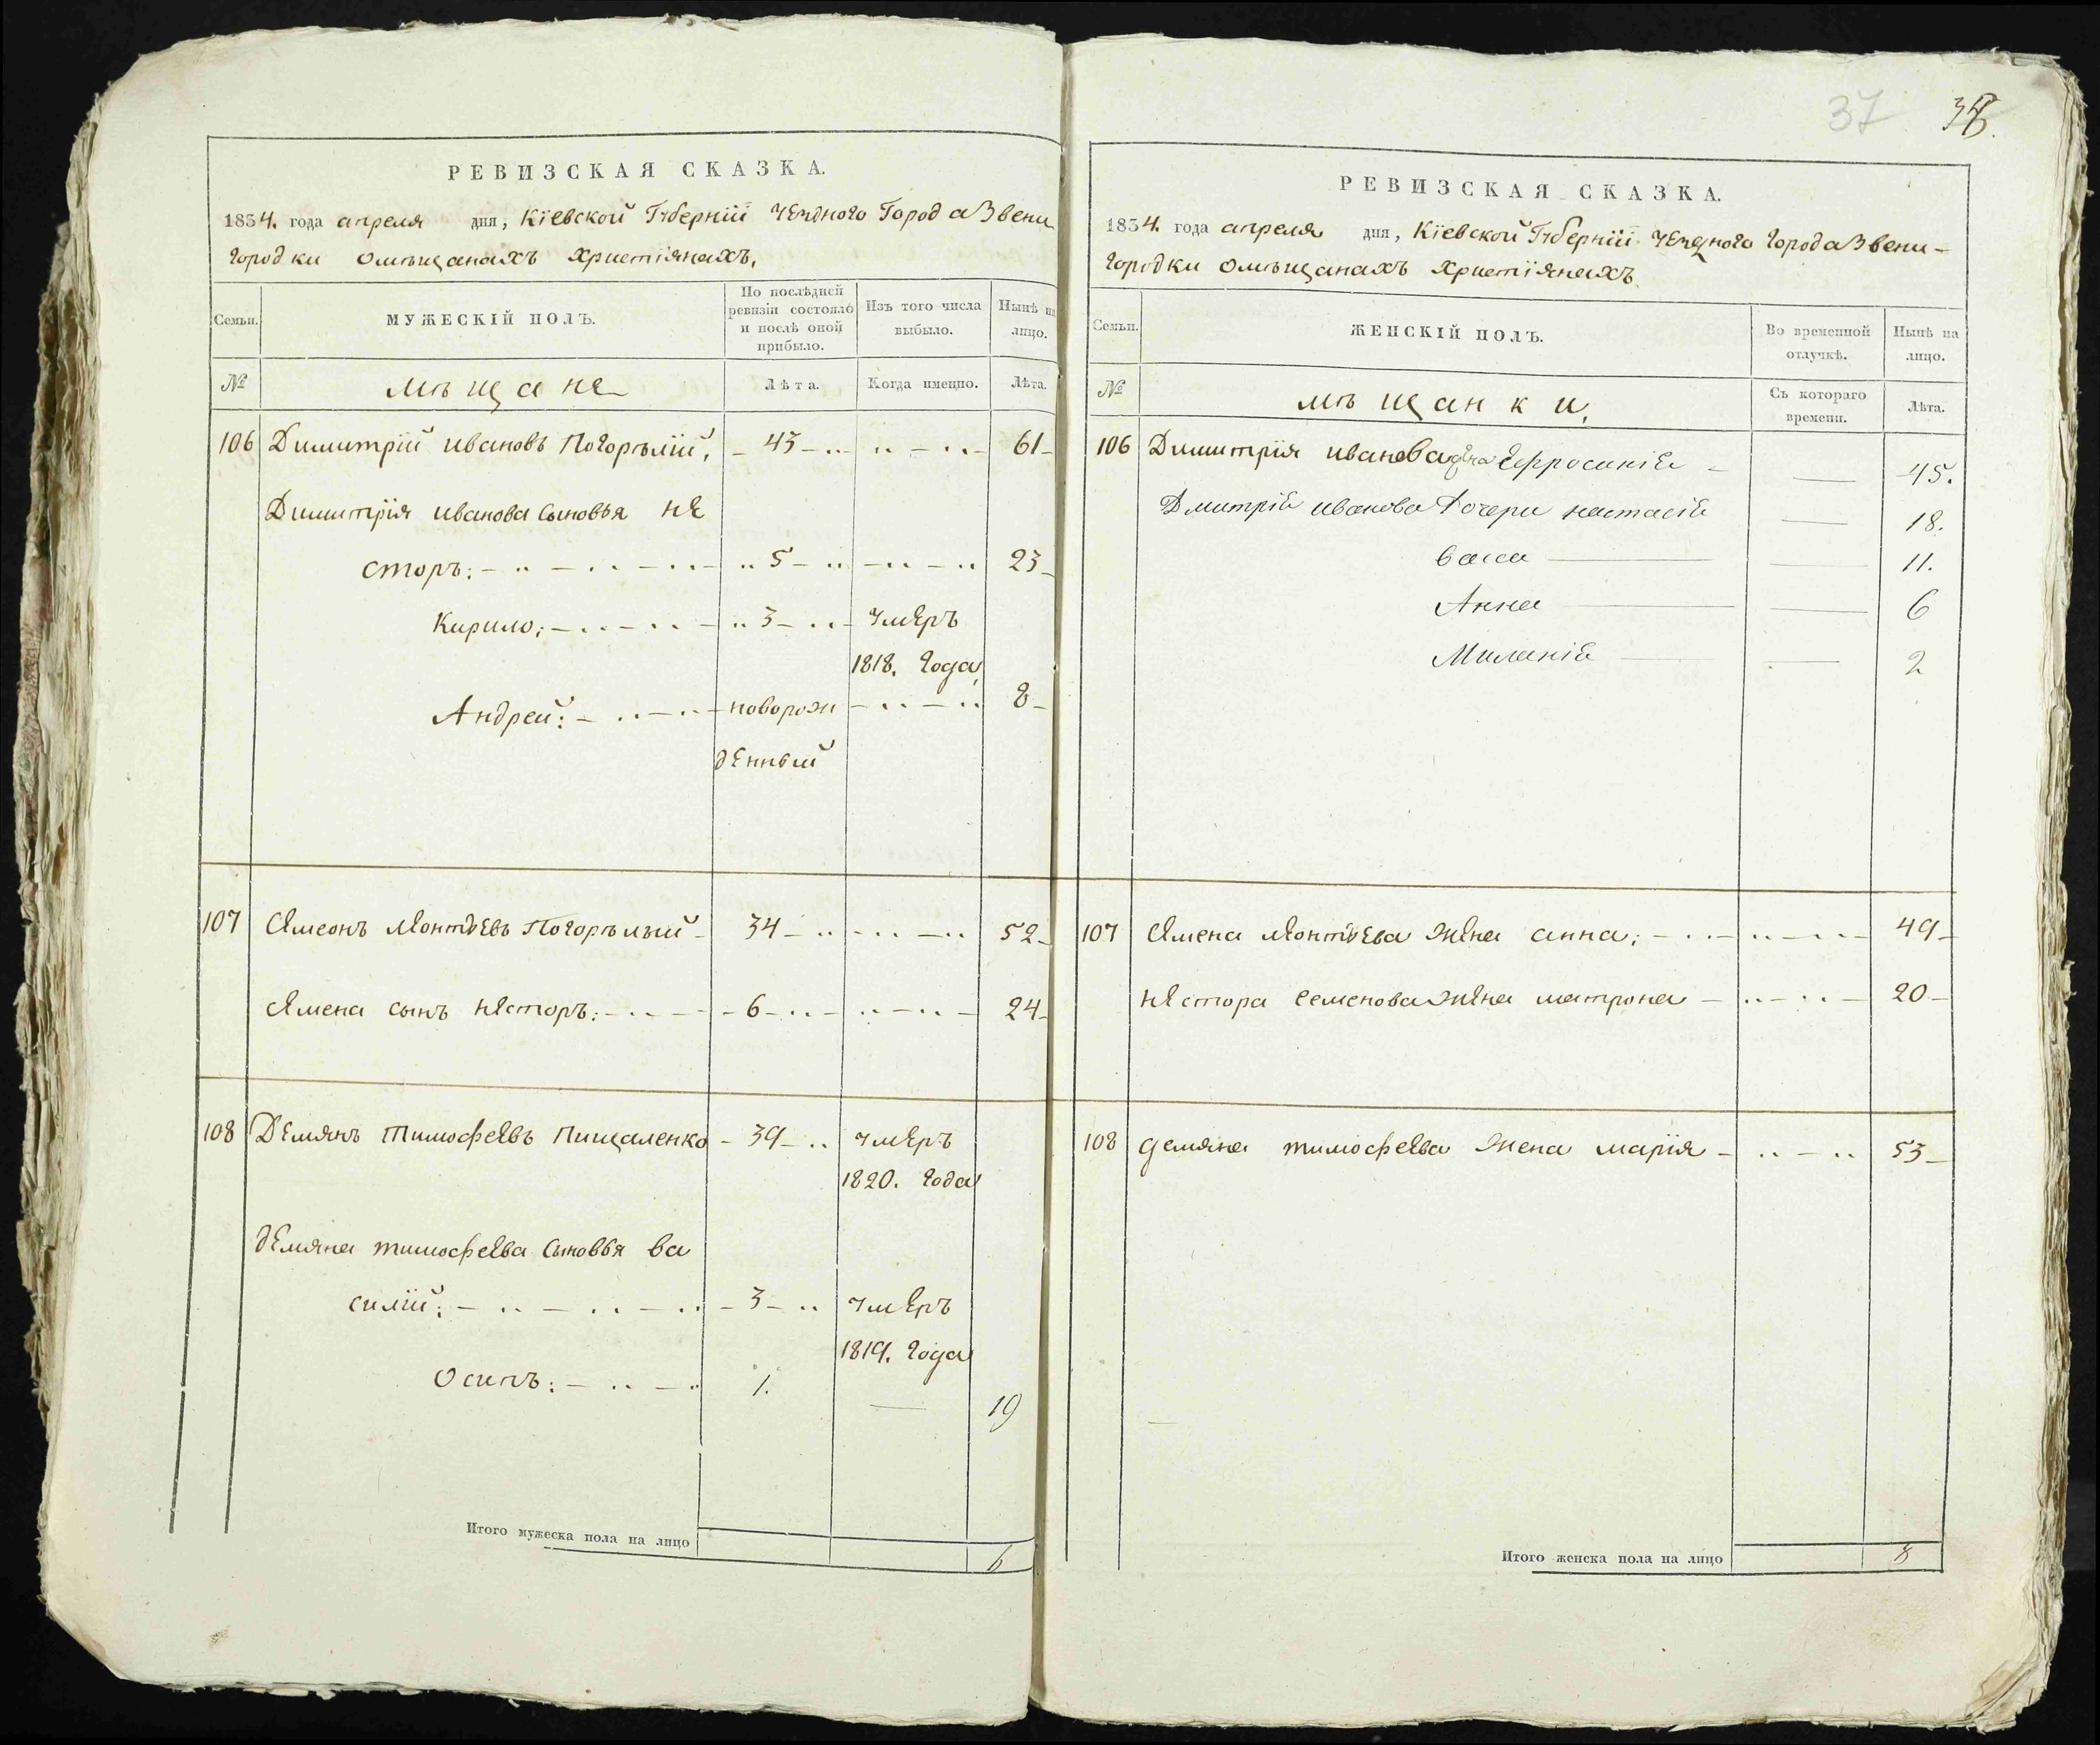 РЕВИЗСКАЯ СКАЗКА.
1834. года апреля дня, Кіевской Губерніи Уезднаго Города Звени
городки омѣщанахъ христіянахъ.
Семьи. МУЖЕСКІЙ ПОЛЪ. По послѣдней ревизіи состояло и послѣ оной прибыло. Изъ того числа выбыло. Нынѣ на лицо.
№ мѣщане Лѣта. Когда имянно. Лѣта.
106 Димитрій ивановъ Погорѣлій, 43 61
Димитрія иванова сыновья не
сторъ: 5 23
Кирило; 3 умеръ
1818. года,
Андрей: новорож 8
денный
107 Семеонъ Погорѣлый 34 52
Семена сынъ несторъ: 6 24
108 Демянъ Тимофеевъ Пищаленко 39 умеръ
1820. года
демяна тимофеева сыновья ва
силій: 3 умеръ
1819. года
Осипъ: 1. 19
Итого мужеска пола на лицо 6
37
РЕВИЗСКАЯ СКАЗКА.
1834. года апреля дня, Кіевской Губерніи Уезднаго города Звени-
городки омѣщанахъ христіянахъ
Семьи. ЖЕНСКІЙ ПОЛЪ. Во временной отлучкѣ. Нынѣ на лицо.
№ мѣщанки, Съ котораго времени. Лѣта.
106 Димитрія иванова жена Ефросинія 45.
Дмитрія иванова дочери настасія 18.
васса 11.
Анна 6
Миланія 2
107 Семена жена анна; 49
нестора семенова жена матрона 20
108 демяна тимофеева жена марія 53
Итого женска пола на лицо 8